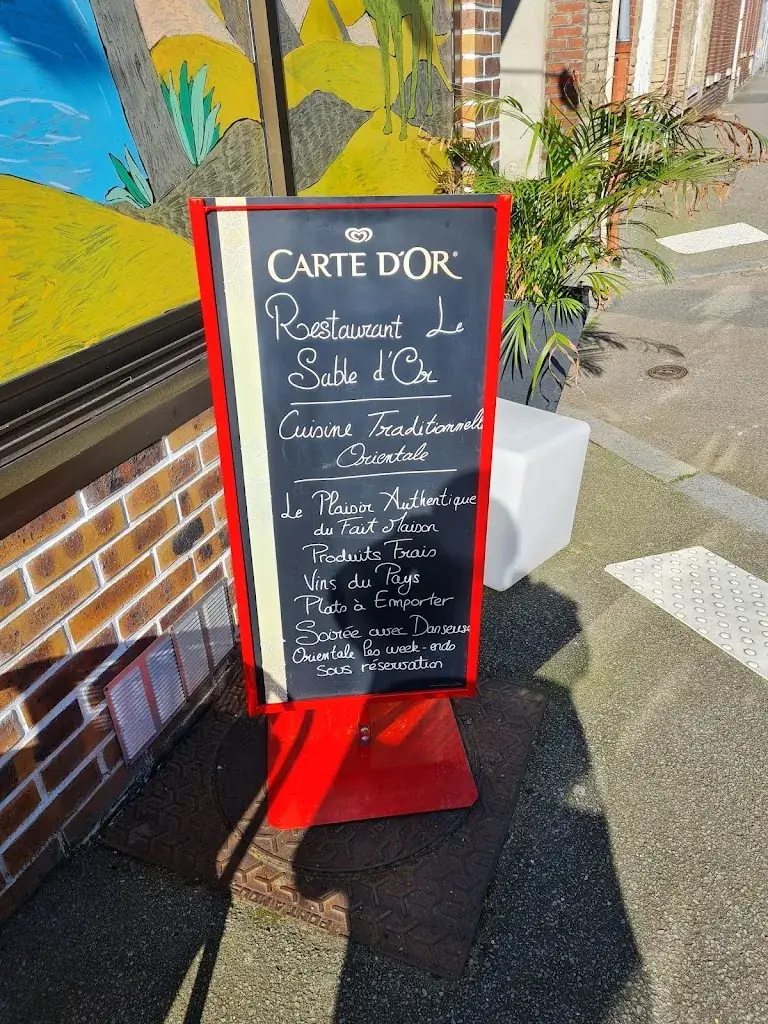 CARTE D'OR®
Restaurant Le
Sable d'Or
Cuisine Traditionnelle
Orientale
Le Plaisir Authentique
du Fait Maison
Produits Frais
Vins du Pays
Plats à Emporter
Soirée avec Danseuse
Orientale les week-ends
sous réservation